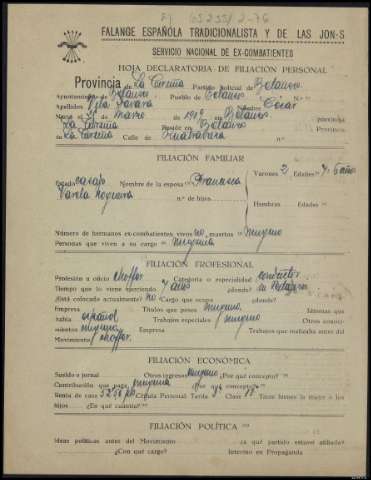 65255/2-76
FALANGE ESPAÑOLA TRADICIONALISTA Y DE LAS JON-S
SERVICIO NACIONAL DE EX-COMBATIENTES
HOJA DECLARATORIA DE FILIACIÓN PERSONAL
Provincia de La Coruña Partido Judicial de Betanzos
Ayuntamiento de Betanzos Pueblo de Betanzos
Apellidos Vila Nombre Cesar
Nació el de Marzo de en Betanzos provincia
La Coruña Reside en Betanzos Provincia
de La Coruña Calle de n.º
FILIACIÓN FAMILIAR
Estado casado Nombre de la esposa Francisca Varones 2 Edades 4, 6 años
Varela Nogueira n.º de hijos Hembras Edades
Número de hermanos ex-combatientes vivos no, muertos ninguno
Personas que viven a su cargo ninguna
FILIACIÓN PROFESIONAL
Profesión u oficio choffer Categoria o especialidad conductor
Tiempo que lo viene ejerciendo 7 años ¿donde? en Betanzos
¿Está colocado actualmente? no Cargo que ocupa ¿donde?
Empresa Títulos que posee ninguno Idiomas que
habla español Trabajos especiales ninguno Otros conoci-
mientos ninguno Empresa Trabajos que realizaba antes del
Movimiento choffer.
FILIACIÓN ECONOMICA
Sueldo o jornal Otros ingresos ninguno ¿Por qué concepto?
Contribución que paga ninguna ¿Por qué concepto?
Renta de casa Cédula Personal Tarifa Clase Tiene bienes la mujer o los
hijos ¿En qué cuantía?
FILIACIÓN POLÍTICA
Ideas políticas antes del Movimiento ¿a qué partido estuvo afiliado?
¿Con qué cargo? Intervino en Propaganda